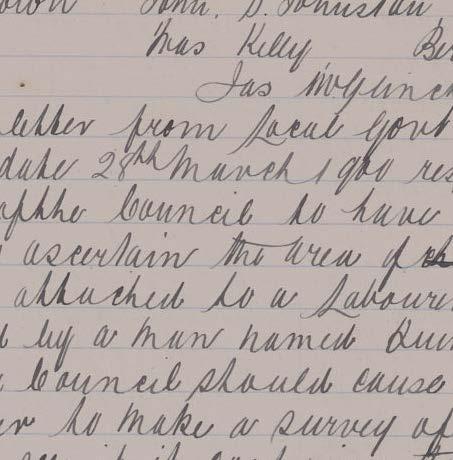 John. S. Johnston
Thos Kelly Ber
Jas McGlinch
letter from Local Govt
date 28th March 1900 res
of the Council to have
ascertain the area of
attached to a Laboure
d by a man named Quin
Council should cause
er to make a survey of